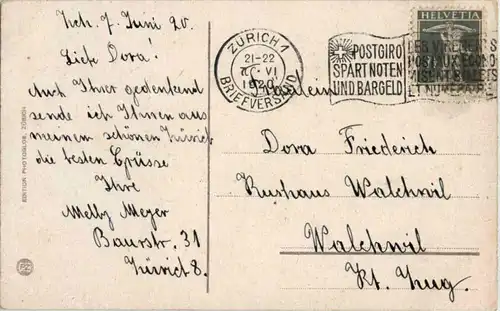 Zch. 7. Juni 20.
Liebe Dora!
Auch Ihrer gedenkend
sende ich Ihnen aus
meinem schönen Zürich
die besten Grüsse
Ihre
Melly Meyer
Baurstr. 31
Zürich 8.
EDITION PHOTOGLOB, ZÜRICH
ZÜRICH 1
21-22
VI
192
BRIEFVERSAND
POSTGIRO
SPART NOTEN
UND BARGELD
HELVETIA
LES VIREMENTS
POSTAUX ECONO
MISENT BILLETS
ET NUMERAIRE
Fräulein
Dora Friederich
Kurhaus Walchwil
Walchwil
Kt. Zug.